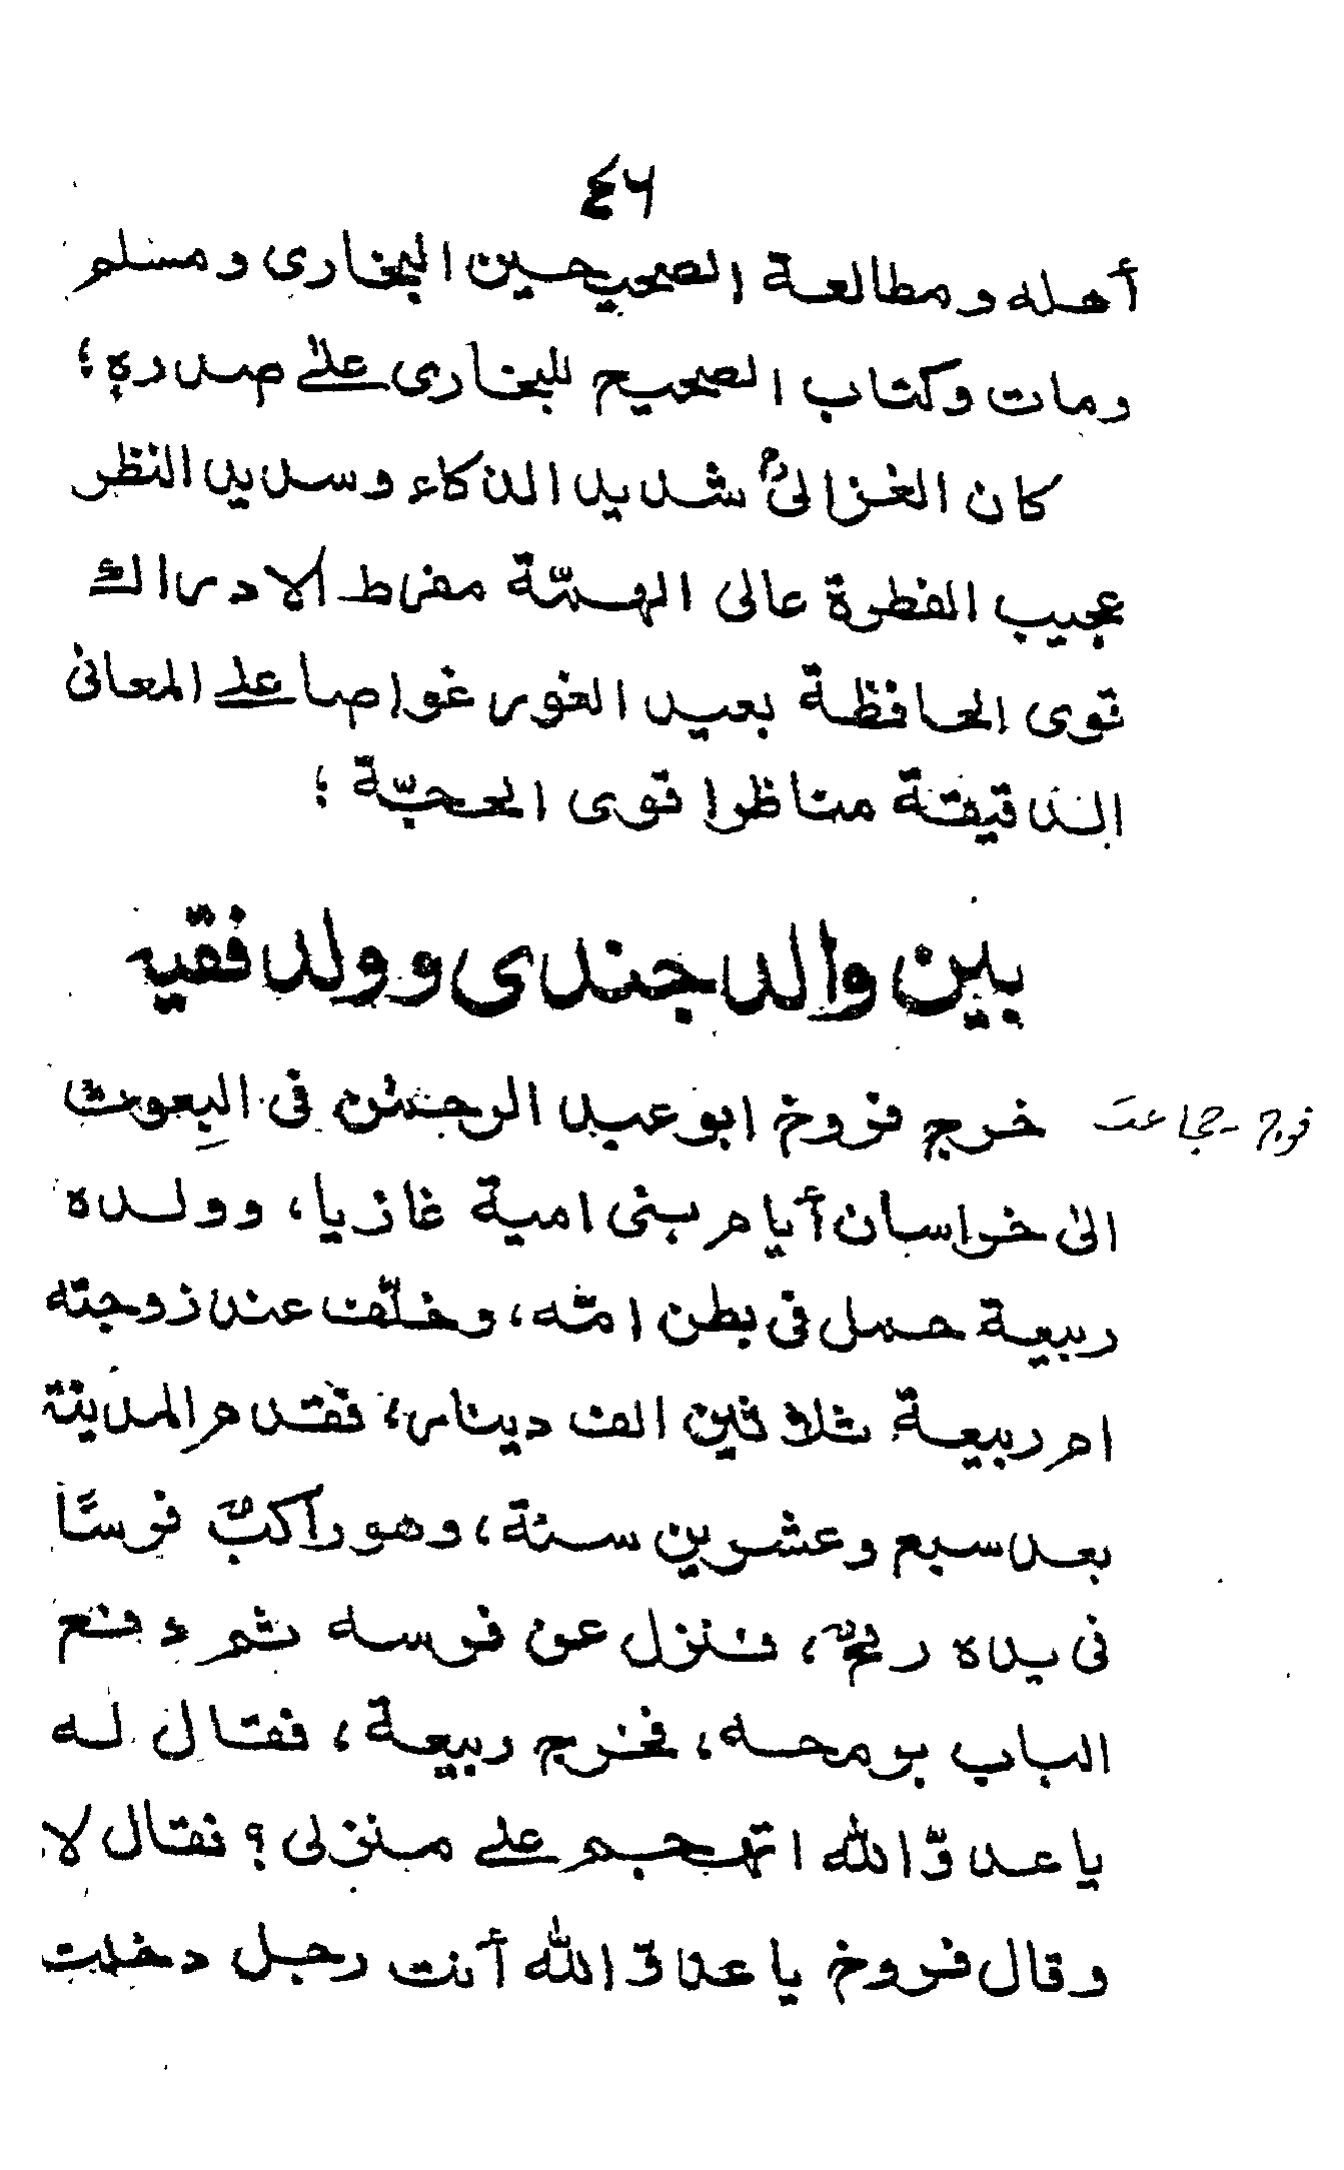 ٤٦
أهله ومطالعة الصحيحين البخارى ومسلم
ومات وكتاب الصحيح للبخارى على صدره؛
كان الغزالىؒ شديد الذكاء وسديد النظر
عجيب الفطرة عالى الهمّة مفرط الادراك
قوى الحافظة بعيد الغور غواصا على المعانى
الدقيقة مناظرا قوى الحجّة؛
بين والد جندى وولد فقيه
خرج فروخ ابو عبد الرحمٰن فى البعوث
فوج - جماعت
الى خراسان أيام بنى امية غازيا، وولده
ربيعة حمل فى بطن امّه، وخلّف عند زوجته
ام ربيعة ثلاثين الف دينار، فقدم المدينة
بعد سبع وعشرين سنة، وهو راكبٌ فرسًا
فى يده رمحٌ، فنزل عن فرسه ثم دفع
الباب برمحه، فخرج ربيعة، فقال له
يا عدوّ الله اتهجم على منزلى؟ فقال لا
وقال فروخ يا عدوّ الله أنت رجل دخلت